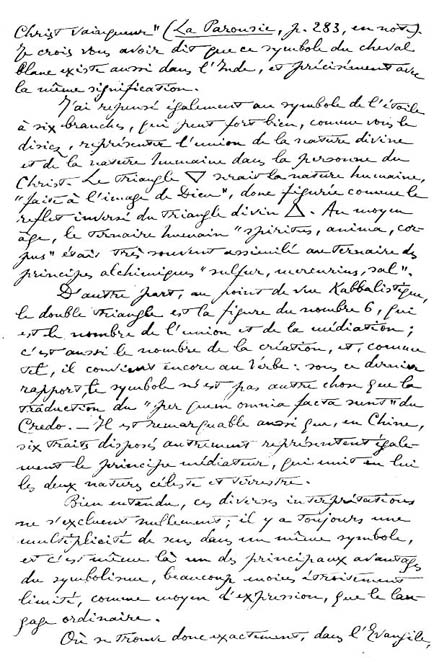 Christ vainqueur" (La Parousie, p. 283, en note).
Je crois vous avoir dit que ce symbole du cheval
blanc existe aussi dans l'Inde, et précisément avec
la même signification.
J'ai repensé également au symbole de l'étoile
à six branches, qui peut fort bien, comme vous le
disiez, représenter l'union de la nature divine
et de la nature humaine dans la personne du
Christ. Le triangle ▽ serait la nature humaine,
"faite à l'image de Dieu", donc figurée comme le
reflet inversé du triangle divin △. Au moyen
âge, le ternaire humain "spiritus, anima, cor-
pus" était très souvent assimilé au ternaire des
principes alchimiques "sulfur, mercurius, sal".
D'autre part, au point de vue Kabbalistique,
le double triangle est la figure du nombre 6, qui
est le nombre de l'union et de la médiation ;
c'est aussi le nombre de la création, et, comme
tel, il convient encore au Verbe : sous ce dernier
rapport, le symbole n'est pas autre chose que la
traduction du "per quem omnia facta sunt" du
Credo. — Il est remarquable aussi que, en Chine,
six traits disposés autrement représentent égale-
ment le principe médiateur, qui unit en lui
les deux natures céleste et terrestre.
Bien entendu, ces diverses interprétations
ne s'excluent nullement ; il y a toujours une
multiplicité de sens dans un même symbole,
et c'est même là un des principaux avantages
du symbolisme, beaucoup moins étroitement
limité, comme moyen d'expression, que le lan-
gage ordinaire.
Où se trouve donc exactement, dans l'Evangile,